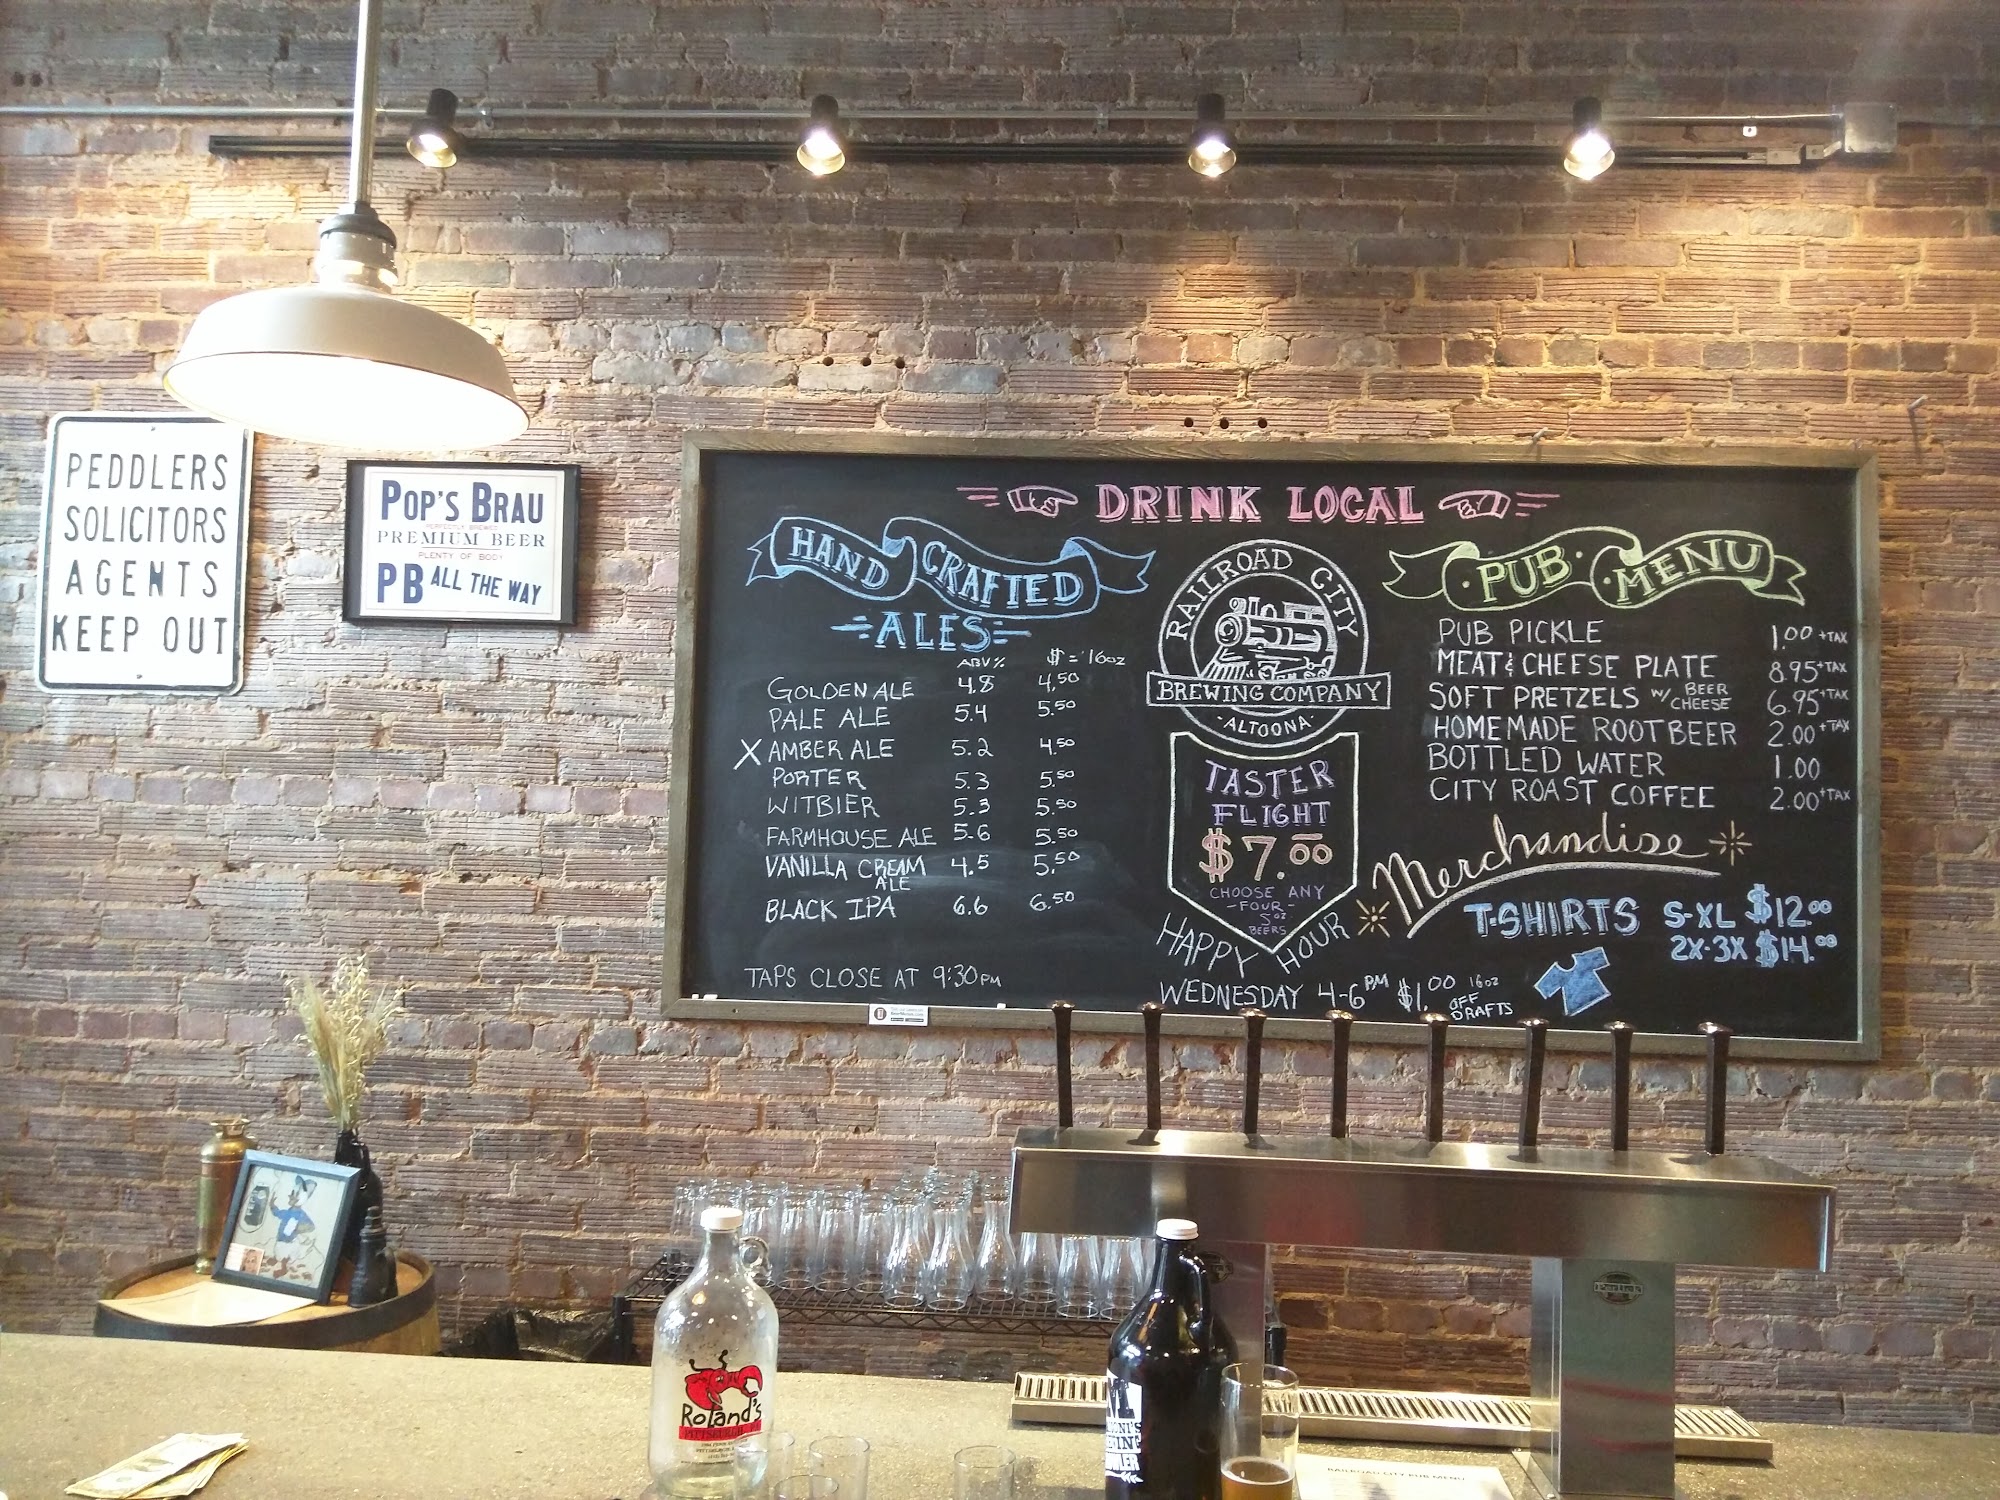 PEDDLERS
SOLICITORS
AGENTS
KEEP OUT
POP'S BRAU
PERFECTLY BREWED
PREMIUM BEER
PLENTY OF BODY
PB ALL THE WAY
DRINK LOCAL
HAND CRAFTED
ALES
ABV% $ = 16oz
GOLDEN ALE 4.8 4.50
PALE ALE 5.4 5.50
X AMBER ALE 5.2 4.50
PORTER 5.3 5.50
WITBIER 5.3 5.50
FARMHOUSE ALE 5.6 5.50
VANILLA CREAM ALE 4.5 5.50
BLACK IPA 6.6 6.50
TAPS CLOSE AT 9:30PM
RAILROAD CITY
BREWING COMPANY
-ALTOONA-
TASTER
FLIGHT
$7.00
CHOOSE ANY
-FOUR-
5oz
BEERS
HAPPY HOUR
WEDNESDAY 4-6PM $1.00 OFF 16oz DRAFTS
·PUB· ·MENU·
PUB PICKLE 1.00 +TAX
MEAT & CHEESE PLATE 8.95 +TAX
SOFT PRETZELS W/ BEER CHEESE 6.95 +TAX
HOMEMADE ROOTBEER 2.00 +TAX
BOTTLED WATER 1.00
CITY ROAST COFFEE 2.00 +TAX
Merchandise
T-SHIRTS S-XL $12.00
2X-3X $14.00
Roland's
PITTSBURGH, PA
RAILROAD CITY PUB MENU